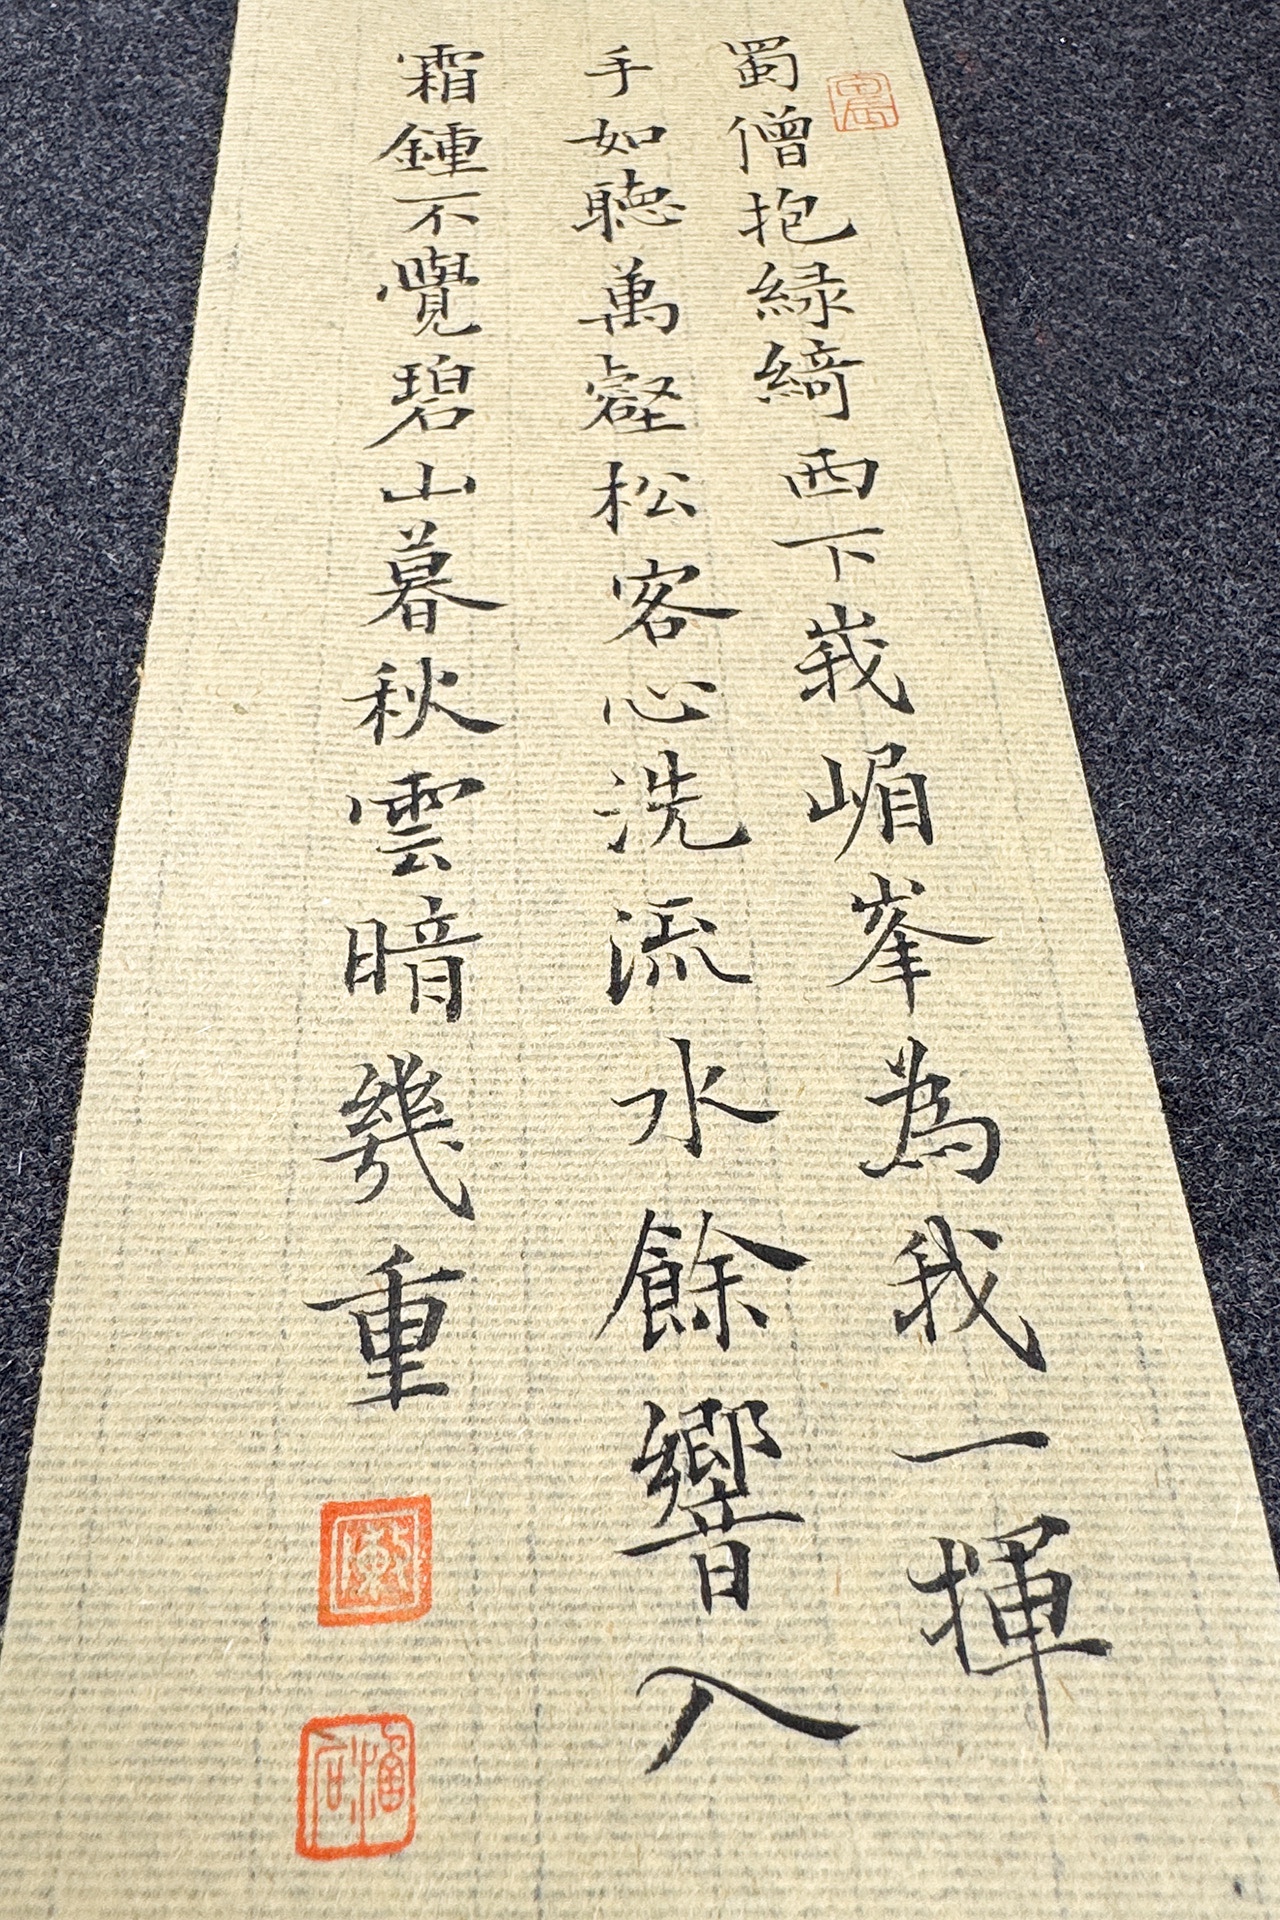 蜀僧抱緑綺西下峩嵋峯為我一揮
手如聴萬壑松客心洗流水餘響入
霜鍾不覺碧山暮秋雲暗幾重